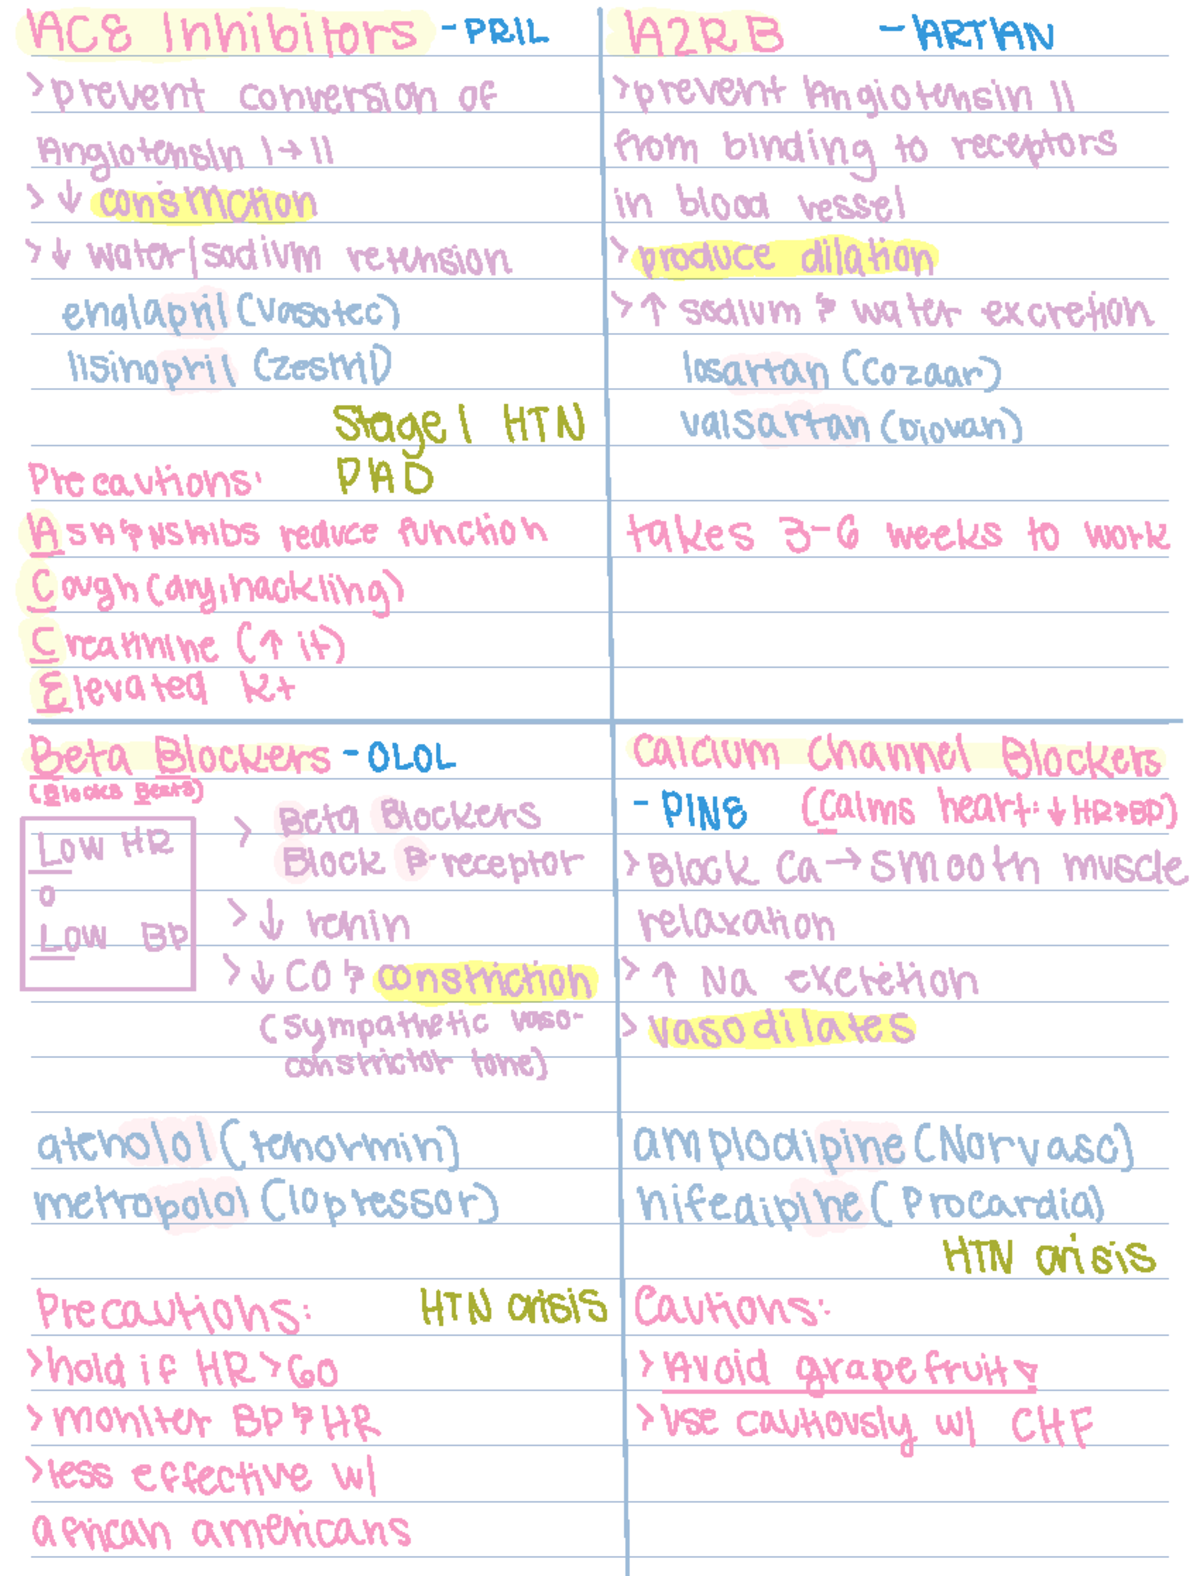 ACE Inhibitors -PRIL
>prevent conversion of
Angiotensin I → II
> ↓ constriction
> ↓ water/sodium retension
enalapril (Vasotec)
lisinopril (Zestril)
Stage 1 HTN
PAD
Precautions:
ASA & NSAIDS reduce function
Cough (dry, hackling)
Creatinine (↑ it)
Elevated K+
A2RB -ARTAN
>prevent Angiotensin II
from binding to receptors
in blood vessel
>produce dilation
>↑ sodium & water excretion
losartan (Cozaar)
valsartan (Diovan)
takes 3-6 weeks to work
Beta Blockers -OLOL
(Blocks Beats)
Low HR
o
Low BP
> Beta Blockers
Block B-receptor
>↓ renin
>↓ CO & constriction
(sympathetic vaso-
constrictor tone)
atenolol (tenormin)
metropolol (lopressor)
HTN crisis
Precautions:
>hold if HR >60
>moniter BP & HR
>less effective w/
african americans
Calcium Channel Blockers
-PINE (Calms heart: ↓ HR & BP)
>Block Ca → smooth muscle
relaxation
> ↑ Na excretion
> vasodilates
amplodipine (Norvasc)
nifedipine (Procardia)
HTN crisis
Cautions:
>Avoid grapefruit!
>use cautiously w/ CHF